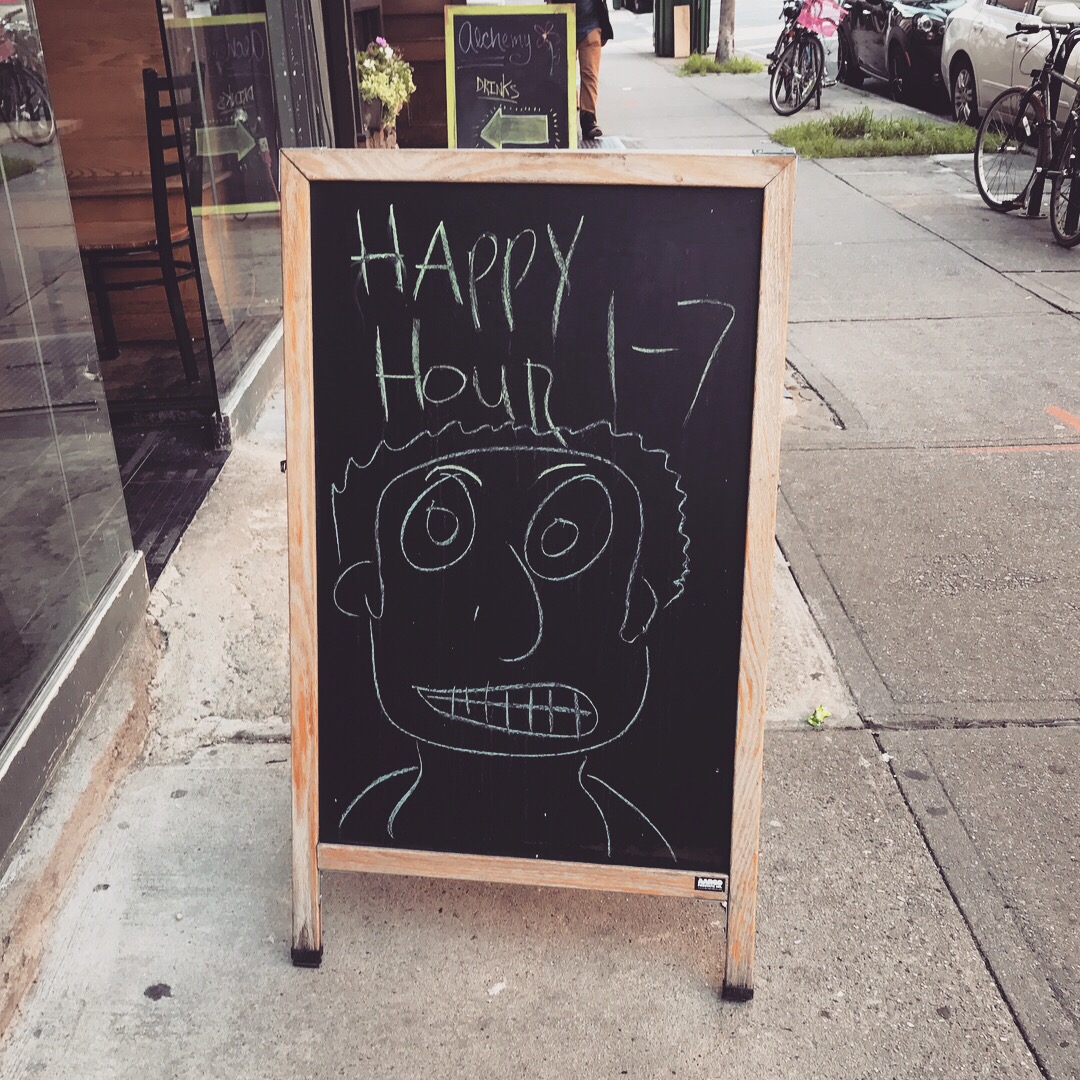 Alchemy
DRINKS
HAPPY
HouR 1-7
AARCO